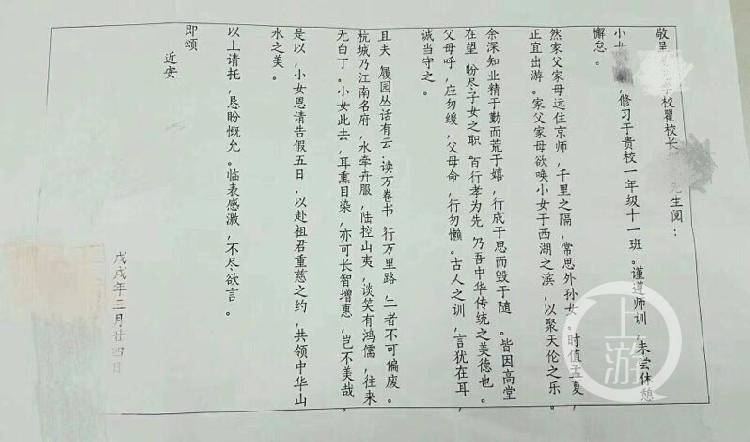 敬呈 学校瞿校长 先生阅：
小女 ，修习于贵校一年级十一班。谨遵师训，未尝休憩
懈怠。
然家父家母远住京师，千里之隔，常思外孙女。时值孟夏，
正宜出游。家父家母欲唤小女于西湖之滨，以聚天伦之乐。
余深知业精于勤而荒于嬉，行成于思而毁于随。皆因高堂
在望，盼尽子女之职。百行孝为先，乃吾中华传统之美德也。
父母呼，应勿缓，父母命，行勿懒。古人之训，言犹在耳，
诚当守之。
且夫 履园丛话有云：读万卷书 行万里路，二者不可偏废。
杭城乃江南名府，水牵卉服，陆控山夷，谈笑有鸿儒，往来
无白丁。小女此去，耳熏目染，亦可长智增惠，岂不美哉。
是以，小女恩请告假五日，以赴祖君重慈之约，共领中华山
水之美。
以上请托，恳盼慨允。临表感激，不尽欲言。
即颂
近安
戊戌年二月廿四日
上游